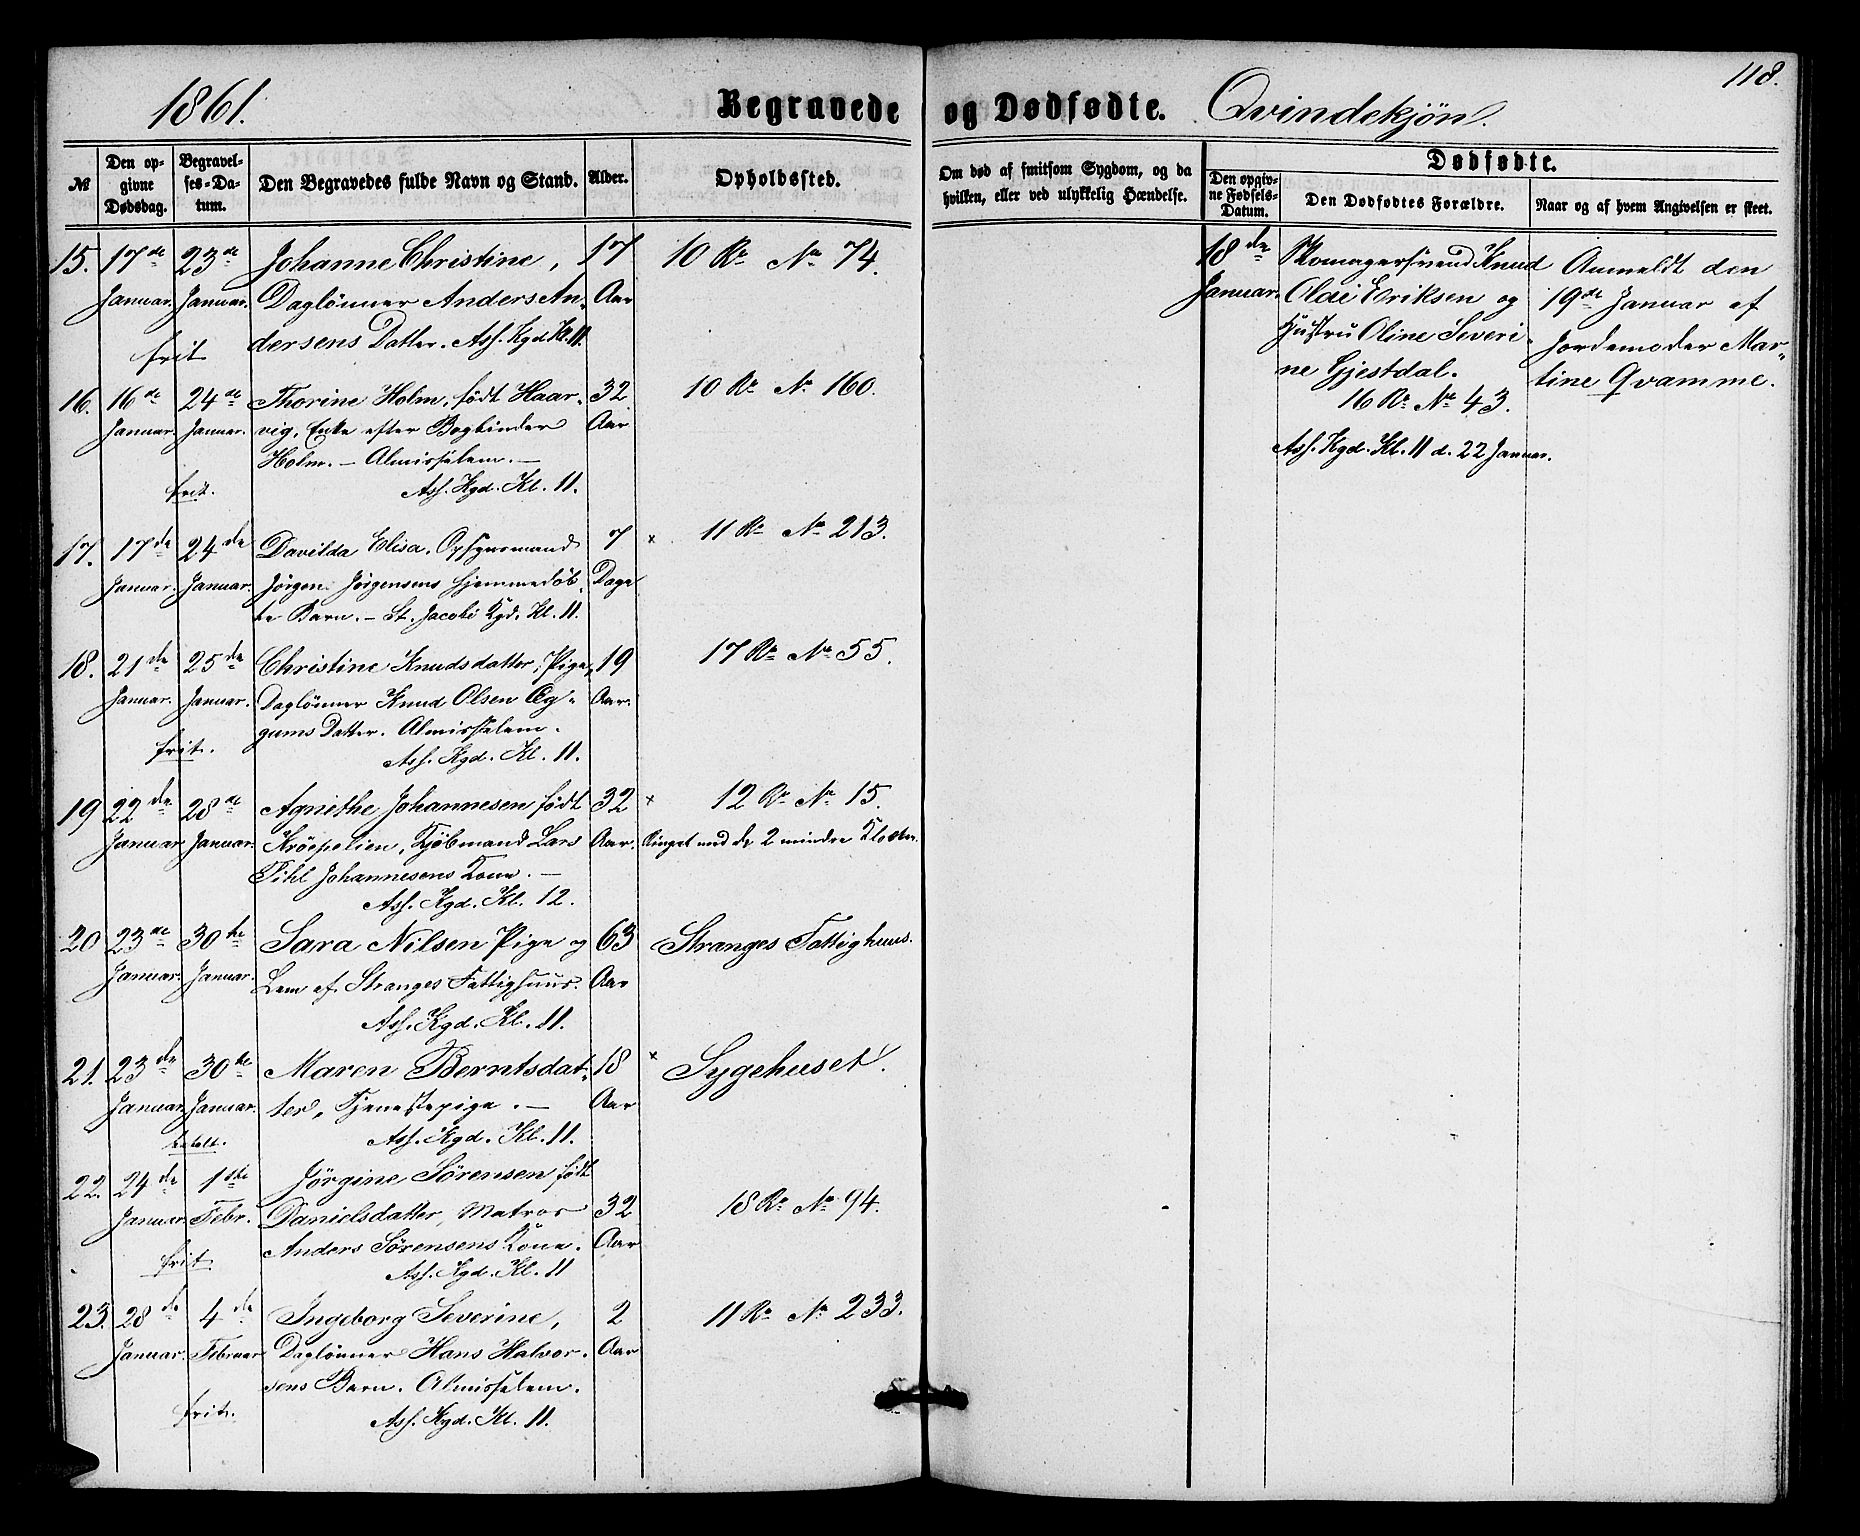 1861.
Begravede og Dødfødte. Qvindekjøn.
118.
№
Den opgivne Dødsdag.
Begravelses-Datum.
Den Begravedes fulde Navn og Stand.
Alder.
Opholdssted.
Om død af smitsom Sygdom, og da hvilken, eller ved ulykkelig Hændelse.
Dødfødte.
Den opgivne Fødsels-Datum.
Den Dødfødtes Forældre.
Naar og af hvem Angivelsen er skeet.
15. 17de 23de Johanne Christine, 17 10 Rr No 74.
Januar. Januar. Daglönner Anders An- Aar
dersens Datter. Ass. Kgd Kl. 11.
frit
16. 16de 24de Thorine Holm, födt Haar- 32 10 Rr No 160.
Januar. Januar. vig, Enke efter Bogbinder Aar
Holm. - Almisselem. -
frit. Ass. Kgd. Kl. 11.
17. 17de 24de Davilda Elisa, Opsynsmand 7 × 11 Rr No 213.
Januar. Januar. Jörgen Jörgensens hjemmedöb- Dage
te Barn. - St. Jacobi Kgd. Kl. 11.
18. 21de 25de Christine Knudsdatter, Pige, 19 17 Rr No 55.
Januar. Januar. Daglönner Knud Olsen Æg- Aar.
gums Datter. Almisselem.
frit. Ass. Kgd. Kl. 11.
19 22de 28de Agnethe Johannesen födt 32 × 12 Rr No 15.
Januar Januar. Kröepelien, Kjöbmand Lars Aar. Ringet med de 2 mindre Klokker.
Pihl Johannesens Kone. -
Ass. Kgd. Kl. 12.
20 23de 30te Sara Nilsen Pige og 63 Stranges Fattighuus.
Januar. Januar. Lem af Stranges Fattighuus. Aar
Ass. Kgd. Kl. 11.
21. 23de 30te Maren Berntsdat- 18 × Sygehuset.
Januar Januar. ter, Tjenestepige. - Aar
betalt. Ass. Kgd. Kl. 11.
22. 24de 1ste Jörgine Sörensen födt
Januar Febr. Danielsdatter, Matros 32 18 Rr No 94.
Anders Sörensens Kone. Aar
frit Ass. Kgd. Kl. 11
23. 28de 4de Ingeborg Severine, 2 11 Rr No 233.
Januar. Februar Daglönner Hans Halvor- Aar
sens Barn. Almisselem.
frit. Ass. Kgd. Kl. 11.
18de Skomagersvend Knud Anmeldt den
Januar. Olai Eriksen og 19de Januar af
Hustru Oline Severi- Jordemoder Mar-
ne Gjestdal. tine Qvamme.
16 Rr No 43.
Ass. Kgd. Kl. 11 d. 22 Januar.